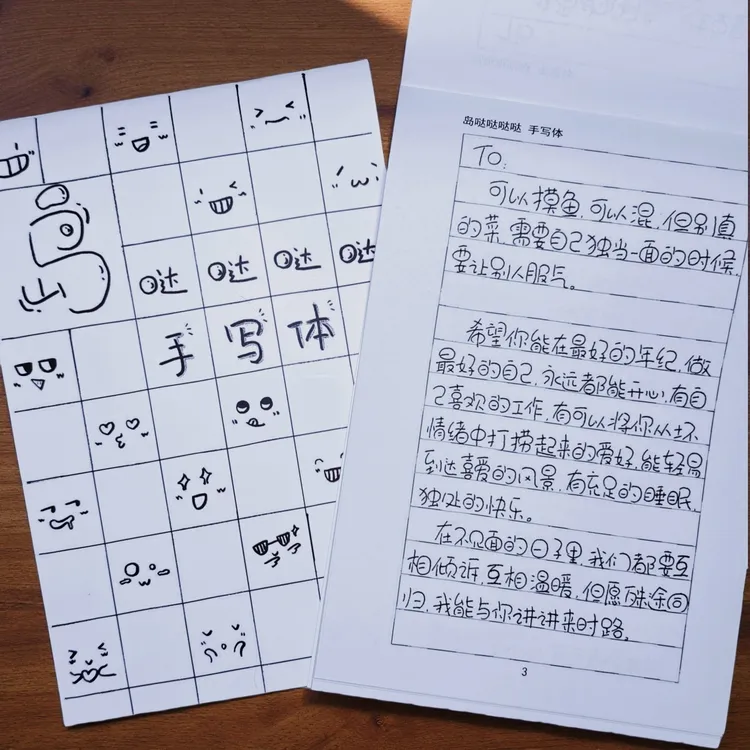 岛
哒 哒 哒 哒
手 写 体
岛哒哒哒哒 手写体
TO:
可以摸鱼,可以混,但别真
的菜,需要自己独当一面的时候,
要让别人服气。
希望你能在最好的年纪,做
最好的自己,永远都能开心,有自
己喜欢的工作,有可以将你从坏
情绪中打捞起来的爱好,能轻易
到达喜爱的风景,有充足的睡眠,
独处的快乐。
在不见面的日子里,我们都要互
相倾诉,互相温暖,但愿殊途同
归,我能与你讲讲来时路。
3